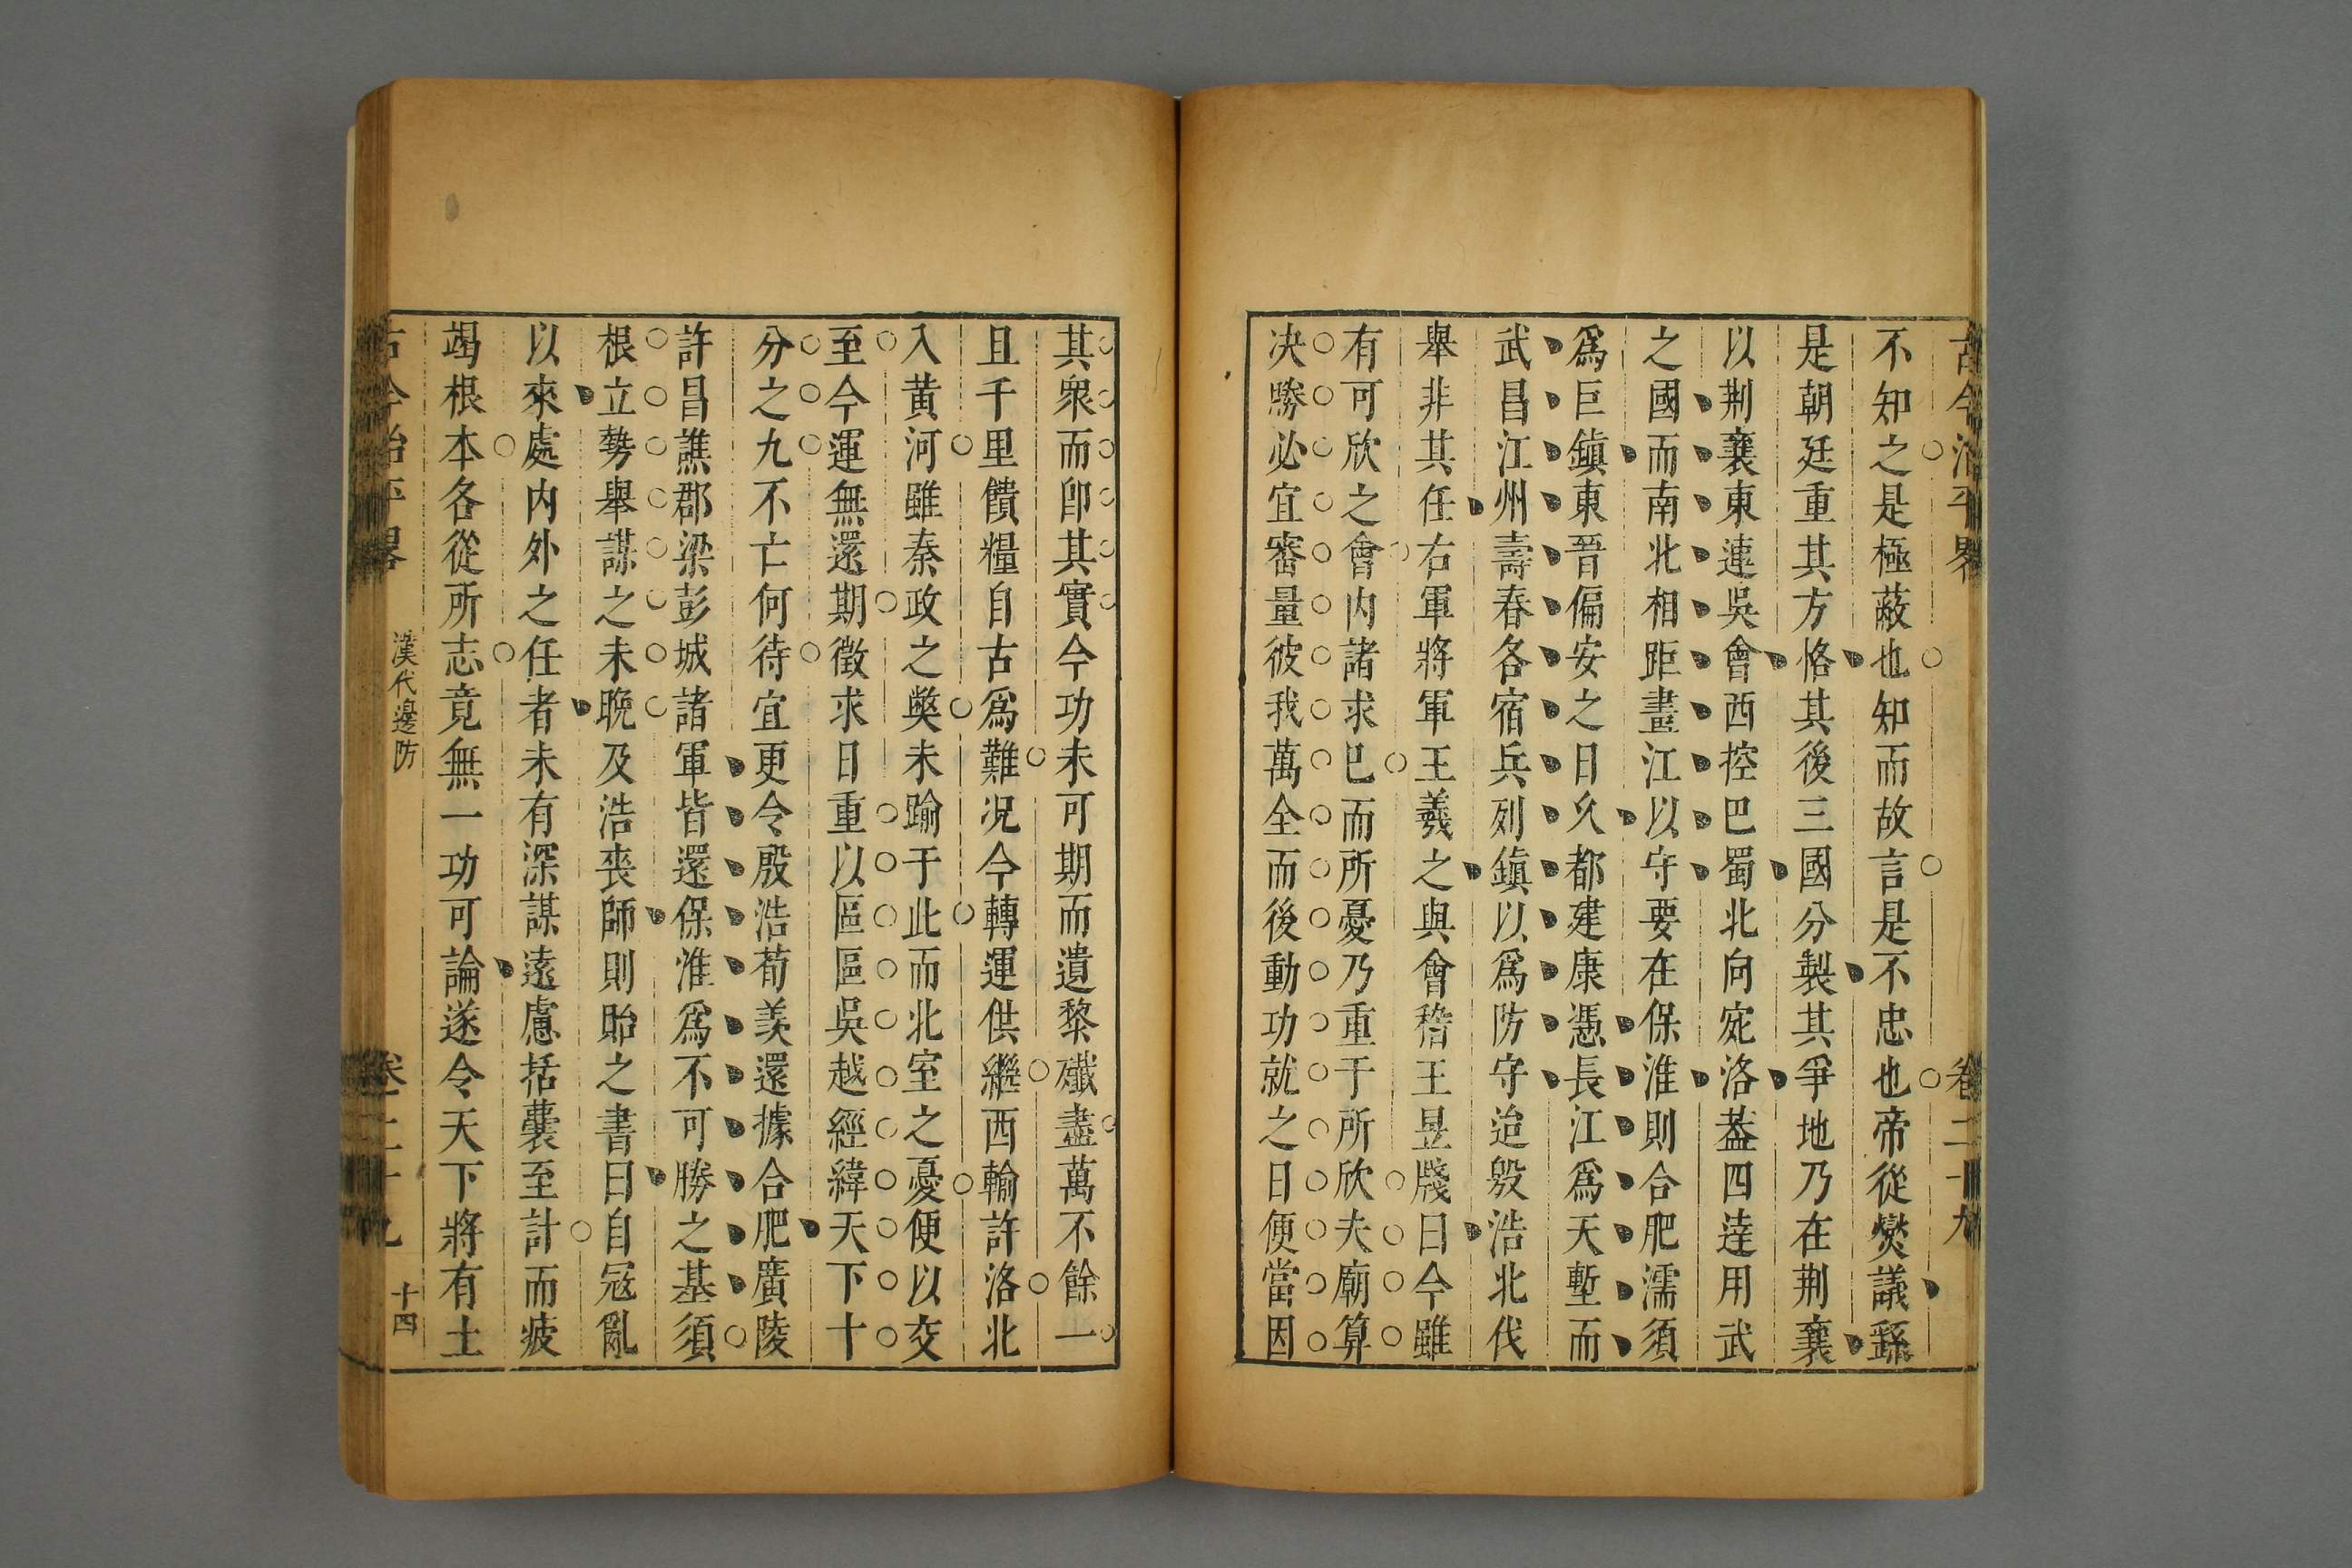 古今治平畧 卷二十九
不知之是極蔽也知而故言是不忠也帝從爕議繇
是朝廷重其方恪其後三國分製其爭地乃在荆襄
以荆襄東連吳會西控巴蜀北向宛洛葢四逹用武
之國而南北相距畫江以守要在保淮則合肥濡須
爲巨鎮東晉偏安之日久都建康憑長江爲天塹而
武昌江州壽春各宿兵列鎮以爲防守迨殷浩北伐
舉非其任右軍將軍王羲之與會稽王昱牋曰今雖
有可欣之會内諸求巳而所憂乃重于所欣夫廟算
决勝必宜審量彼我萬全而後動功就之日便當因
其衆而卽其實今功未可期而遺黎殱盡萬不餘一
且千里饋糧自古爲難况今轉運供繼西輸許洛北
入黃河雖秦政之獘未踰于此而北室之憂便以交
至今運無還期徵求日重以區區吳越經緯天下十
分之九不亡何待宜更令殷浩荀羡還據合肥廣陵
許昌譙郡梁彭城諸軍皆還保淮爲不可勝之基須
根立勢舉謀之未晚及浩喪師則貽之書曰自冦亂
以來處内外之任者未有深謀遠慮括囊至計而疲
竭根本各從所志竟無一功可論遂令天下將有土
古今治平畧 漢代邊防 卷二十九 十四